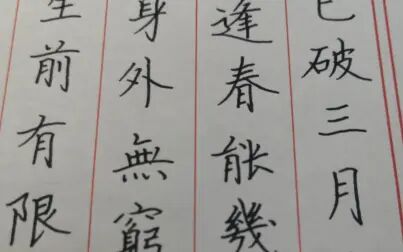 已破三月
逢春能幾
身外無窮
生前有限